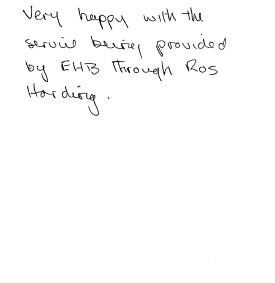 Very happy with the
service being provided
by EHB through Ros
Harding.